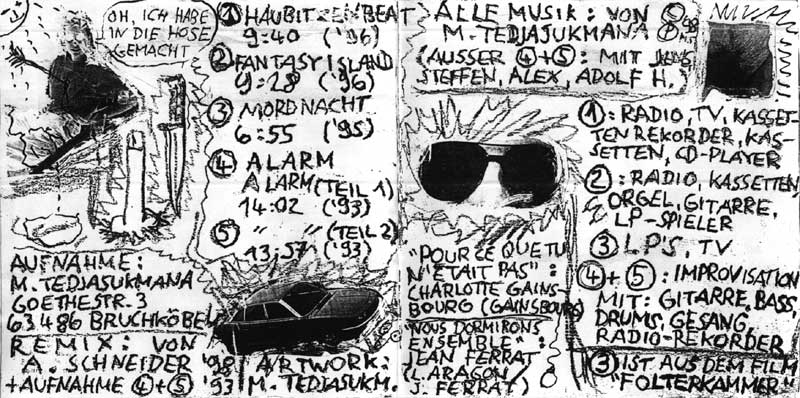 OH, ICH HABE
IN DIE HOSE
GEMACHT
① HAUBITZENBEAT
9:40 ('96)
② FANTASY ISLAND
9:28 ('96)
③ MORDNACHT
6:55 ('95)
④ ALARM
ALARM (TEIL 1)
14:02 ('93)
⑤ " " (TEIL 2)
13:57 ('93)
AUFNAHME:
M. TEDJASUKMANA
GOETHESTR. 3
63486 BRUCHKÖBEL
REMIX: VON
A. SCHNEIDER '98
+ AUFNAHME ④+⑤ '93
ARTWORK:
M. TEDJASUKM.
ALLE MUSIK: VON
M. TEDJASUKMANA
(AUSSER ④+⑤: MIT JENS
STEFFEN, ALEX, ADOLF H.)
"POUR CE QUE TU
N'ÉTAIT PAS":
CHARLOTTE GAINS-
BOURG (GAINSBOURG)
"NOUS DORMIRONS
ENSEMBLE":
JEAN FERRAT
(L. ARAGON/
J. FERRAT)
①: RADIO, TV, KASSET-
TENREKORDER, KAS-
SETTEN, CD-PLAYER
②: RADIO, KASSETTEN
ORGEL, GITARRE,
LP-SPIELER
③ LP'S, TV
④+⑤: IMPROVISATION
MIT: GITARRE, BASS,
DRUMS, GESANG,
RADIO-REKORDER
③ IST AUS DEM FILM
"FOLTERKAMMER"